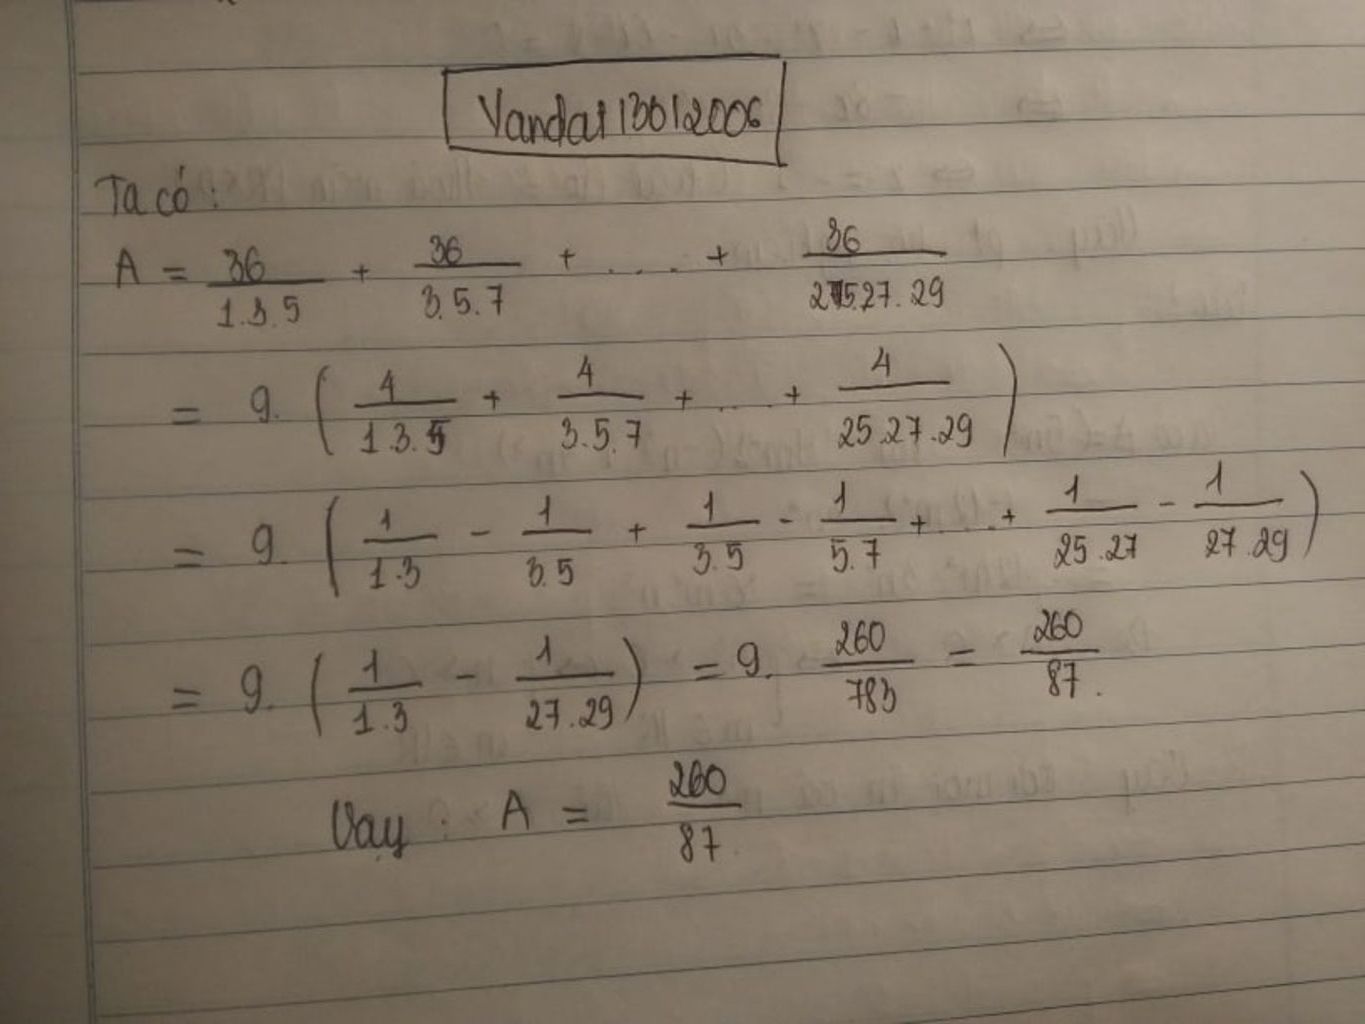 Vandai13012006
Ta có :
A = 36/1.3.5 + 36/3.5.7 + .... + 36/25.27.29
= 9. ( 4/1.3.5 + 4/3.5.7 + .... + 4/25.27.29 )
= 9. ( 1/1.3 - 1/3.5 + 1/3.5 - 1/5.7 + ... + 1/25.27 - 1/27.29 )
= 9. ( 1/1.3 - 1/27.29 ) = 9. 260/783 = 260/87.
Vậy : A = 260/87